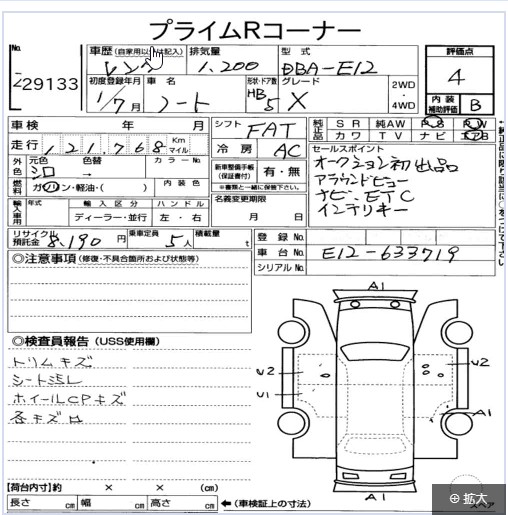 プライムRコーナー
No.
29133
車歴 (自家用以外は記入)
レンタ
排気量
1,200
型式
DBA-E12
評価点
4
初度登録年月
1/7 月
車名
ノート
形状・ドア数
HB 5
グレード
X
2WD
・
4WD
内装補助評価
B
車検 年 月
シフト
FAT
純正品
SR 純AW PS PW
カワ TV ナビ エアB
走行 121,768 Km マイル
冷房
AC
セールスポイント
オークション初出品
アラウンドビュー
ナビ、ETC
インテリキー
外色
元色 色替 カラーNo.
シロ →
新車整備手帳
(保証書付)
有・無
※書類と一緒に保管下さい。
燃料
ガソリン・軽油・( )
内装色
名義変更期限
月 日
輸入車用
年式 輸入区分 ハンドル
ディーラー・並行 左・右
リサイクル預託金
8,190 円
乗車定員
5人
積載量
t
登録No.
車台No.
E12-633719
シリアルNo.
◎注意事項 (修復・不具合箇所および状態等)
◎検査員報告 (USS使用欄)
トリムキズ
シート汚レ
ホイールCPキズ
各キズ
A1
U2
U2
U1
A1
A1
【荷台内寸】約 × × (cm)
長さ cm 幅 cm 高さ cm
← (車検証上の寸法)
スペア
拡大